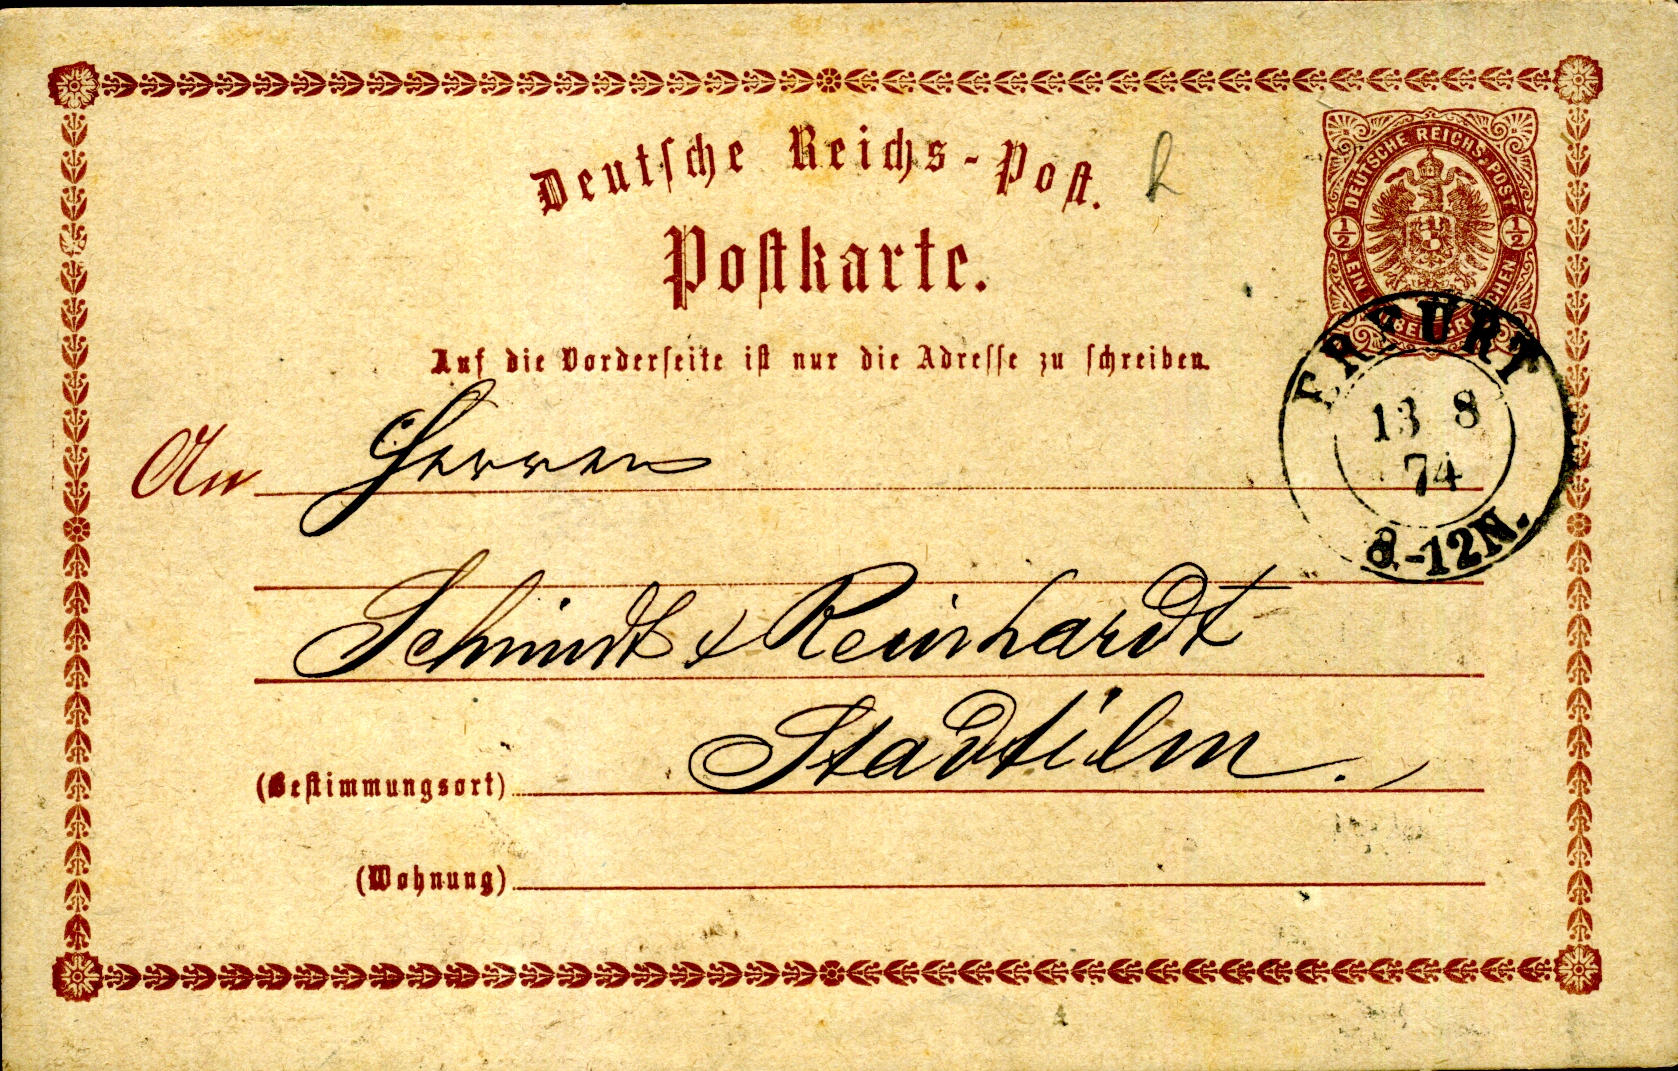 Deutsche Reichs-Post.
Postkarte.
DEUTSCHE REICHS-POST
1/2
1/2
EIN
Auf die Vorderseite ist nur die Adresse zu schreiben.
ERFURT
13 8
74
8.-12N.
An Herren
Schmidt & Reinhardt
Stadtilm.
(Bestimmungsort)
(Wohnung)